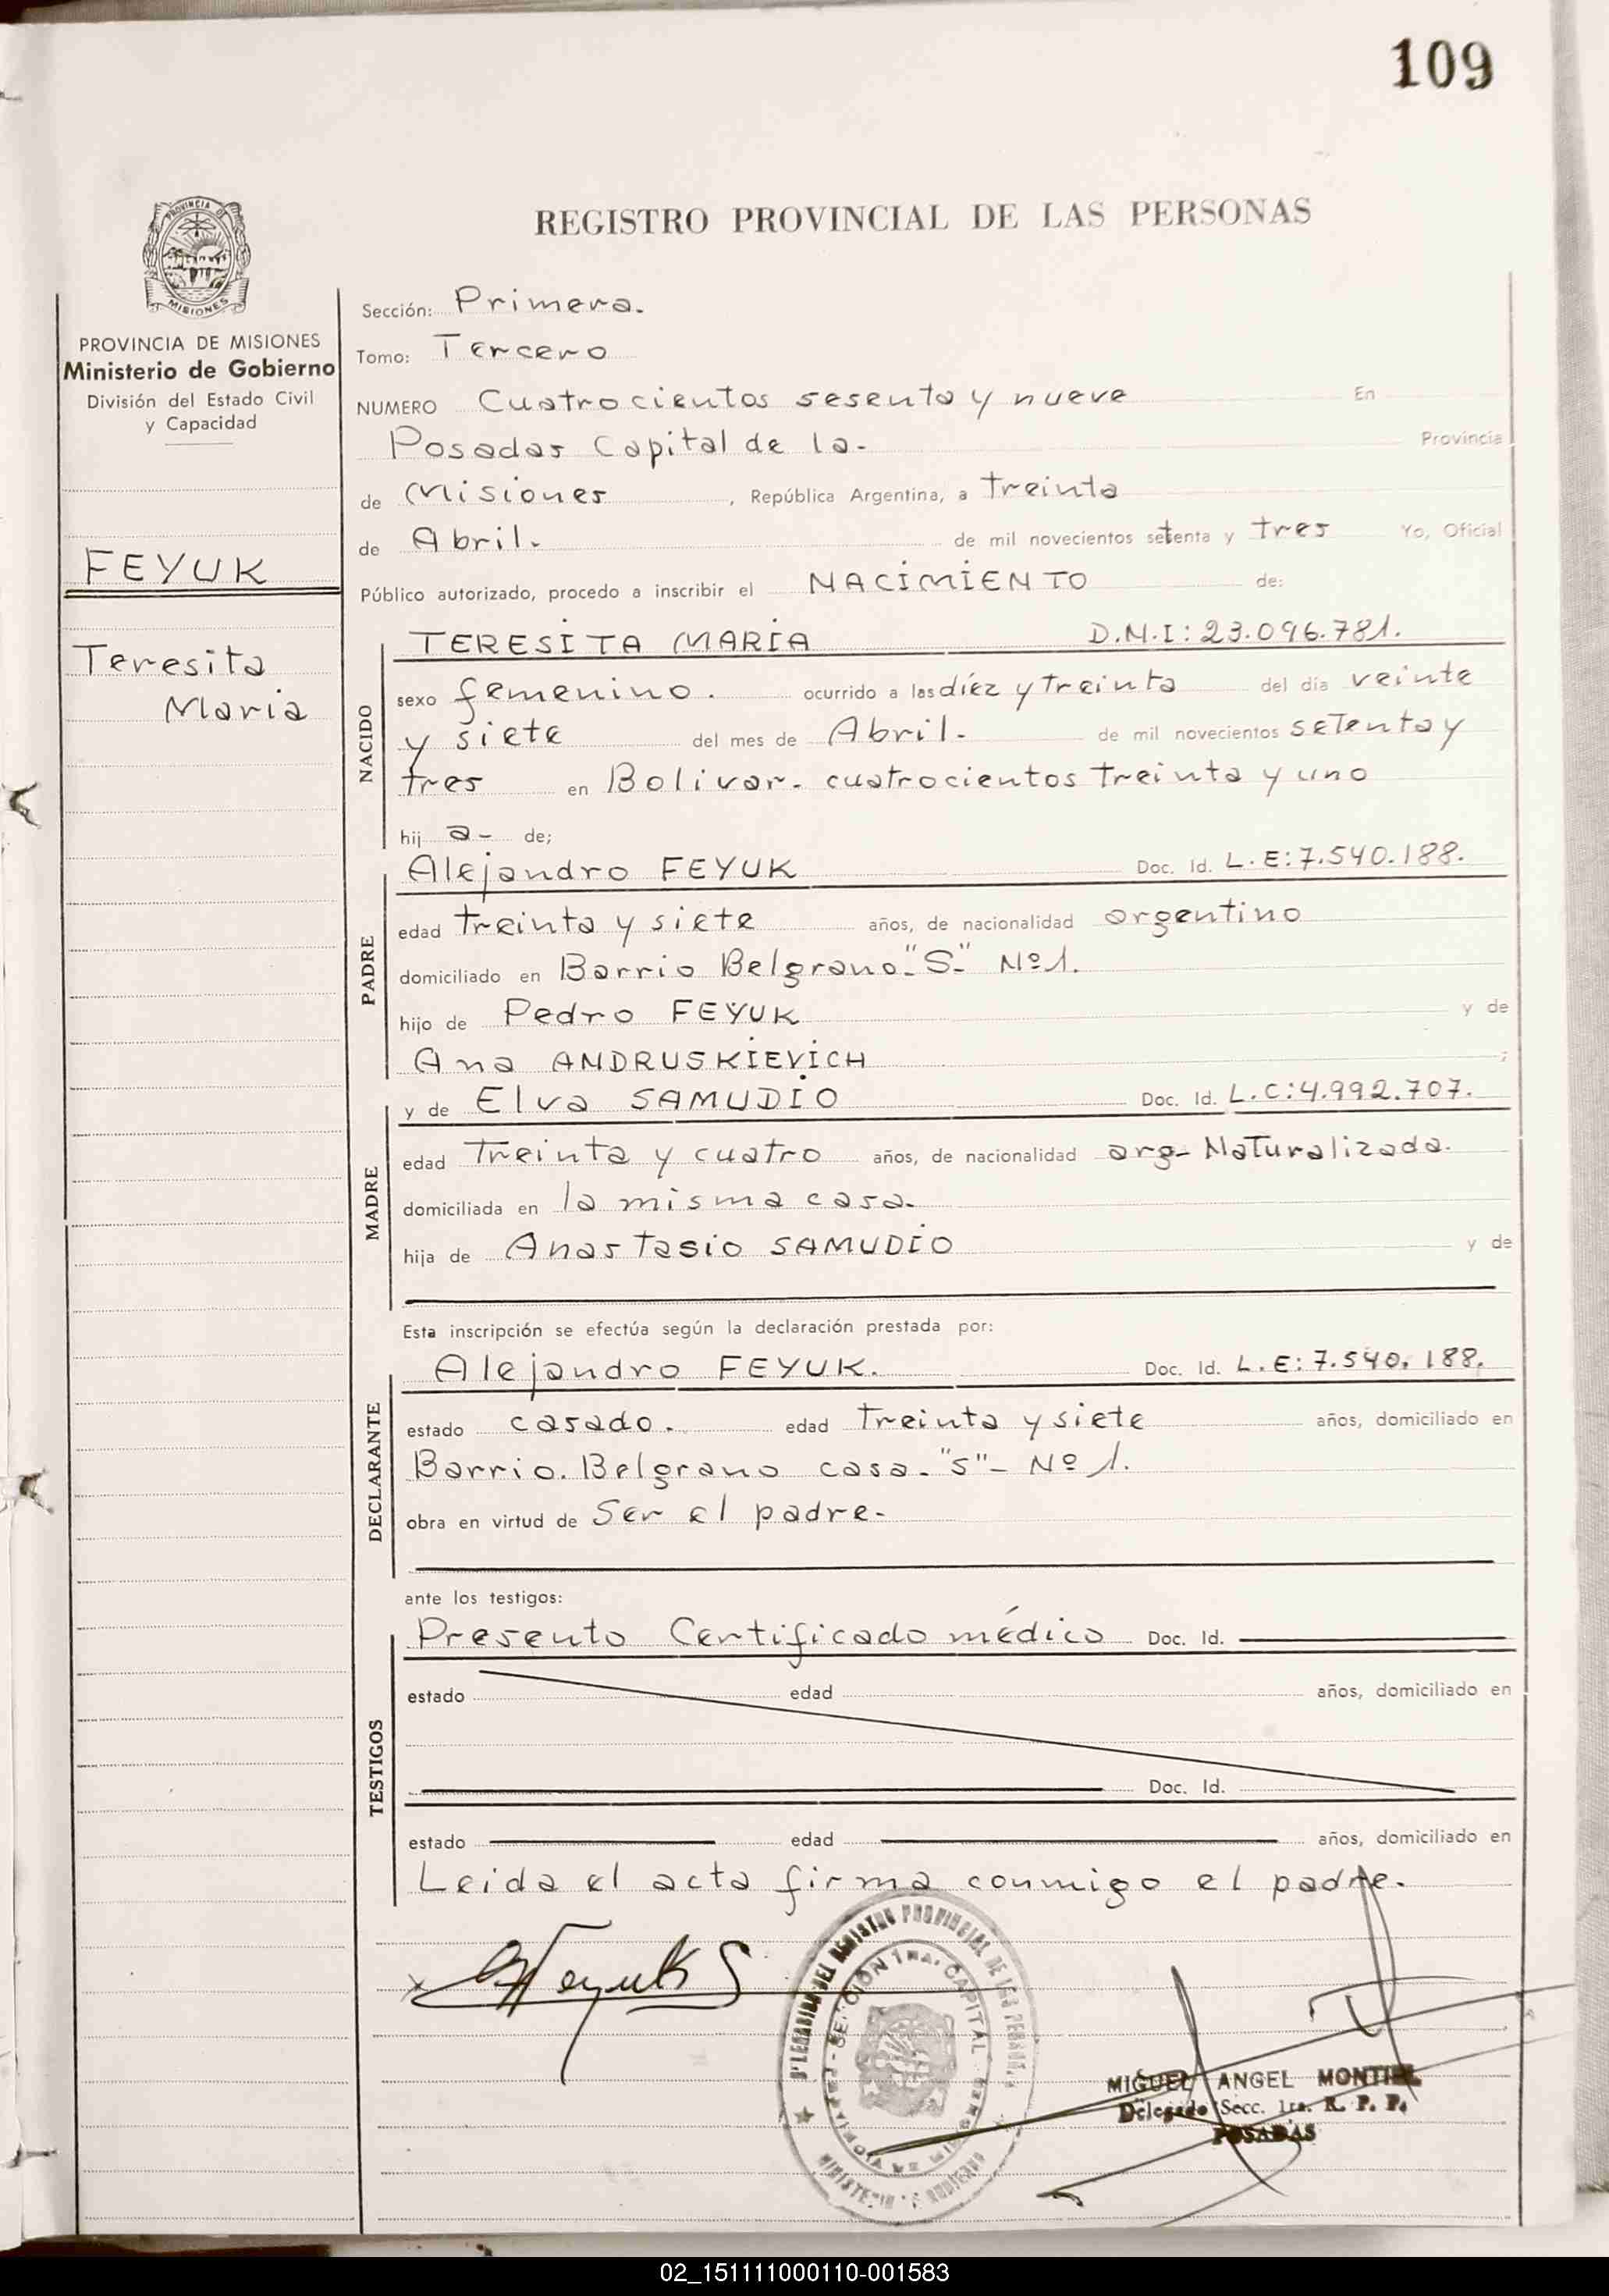 109
PROVINCIA DE
MISIONES
REGISTRO PROVINCIAL DE LAS PERSONAS
PROVINCIA DE MISIONES
Ministerio de Gobierno
División del Estado Civil
y Capacidad
FEYUK
Teresita
Maria
Sección: Primera.
Tomo: Tercero
NUMERO Cuatrocientos sesenta y nueve En
Posadas Capital de la- Provincia
de Misiones, República Argentina, a treinta
de Abril. de mil novecientos setenta y tres Yo, Oficial
Público autorizado, procedo a inscribir el NACIMIENTO de:
NACIDO
TERESITA MARIA D.N.I: 23.096.781.
sexo femenino. ocurrido a las diez y treinta del día veinte
y siete del mes de Abril. de mil novecientos setenta y
tres en Bolivar- cuatrocientos treinta y uno
hij a- de;
PADRE
Alejandro FEYUK Doc. Id. L.E: 7.540.188.
edad treinta y siete años, de nacionalidad argentino
domiciliado en Barrio Belgrano-"S-" Nº1.
hijo de Pedro FEYUK y de
Ana ANDRUSKIEVICH ;
MADRE
y de Elva SAMUDIO Doc. Id. L.C: 4.992.707.
edad Treinta y cuatro años, de nacionalidad arg- Naturalizada.
domiciliada en la misma casa.
hija de Anastasio SAMUDIO y de
Esta inscripción se efectúa según la declaración prestada por:
DECLARANTE
Alejandro FEYUK. Doc. Id. L.E: 7.540.188.
estado casado. edad Treinta y siete años, domiciliado en
Barrio. Belgrano casa-"S"- Nº 1.
obra en virtud de Ser el padre-
ante los testigos:
TESTIGOS
Presento Certificado médico Doc. Id.
estado edad años, domiciliado en
Doc. Id.
estado edad años, domiciliado en
Leida el acta firma conmigo el padre.
Feyuk
DEL REGISTRO PROVINCIAL DE LAS
SECCION 1RA. CAPITAL
MINISTERIO GOBIERNO
MIGUEL ANGEL MONTIEL
Delegado Secc. 1ra. R. P. P.
POSADAS
02_151111000110-001583